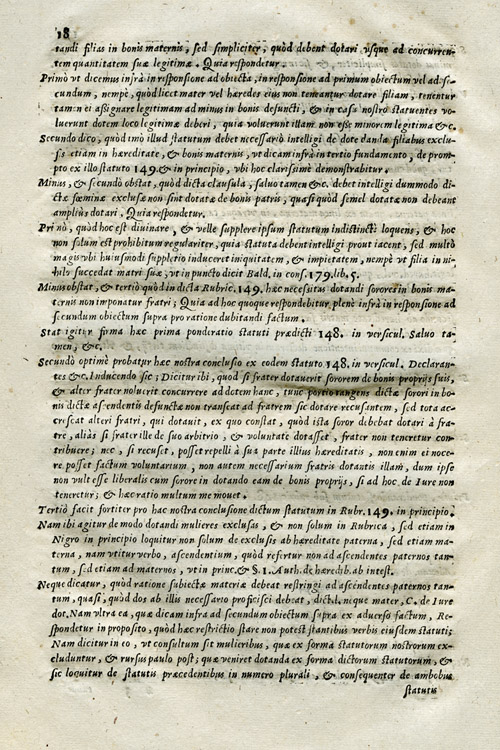 18
tandi filias in bonis maternis, sed simpliciter, quòd debent dotari vsque ad concurren-
tem quantitatem suæ legitimæ. Quia respondetur.
Primò vt dicemus infrà in responsione ad obiecta, in responsione ad primum obiectum vel ad se-
cundum, nempè, quòd licet mater vel hæredes eius non teneantur dotare filiam, tenentur
tamen ei assignare legitimam ad minus in bonis defuncti, & in casu nostro statuentes vo-
luerunt dotem loco legitimæ deberi, quia voluerunt illam non esse minorem legitima &c.
Secundo dico, quòd imò illud statutum debet necessariò intelligi de dote danda filiabus exclu-
sis etiam in hæreditate, & bonis maternis, vt dicam infrà in tertio fundamento, de prom-
pto ex illo statuto 149. & in principio, vbi hoc clarissimè demonstrabitur.
Minus, & secundò obstat, quòd dicta clausula, saluo tamen &c. debet intelligi dummodo di-
ctæ fœminæ exclusæ non sint dotatæ de bonis patris, quasi quòd semel dotatæ non debeant
ampliùs dotari, Quia respondetur.
Primò, quòd hoc est diuinare, & velle supplere ipsum statutum indistinctè loquens, & hoc
non solum est prohibitum regulariter, quia statuta debent intelligi prout iacent, sed multò
magis vbi huiusmodi suppletio induceret iniquitatem, & impietatem, nempè vt filia in ni-
hilo succedat matri suæ, vt in puncto dicit Bald. in cons. 179. lib. 5.
Minus obstat, & tertiò quòd in dicta Rubric. 149. hæc necessitas dotandi sorores in bonis ma-
ternis non imponatur fratri; Quia ad hoc quoque respondebitur plenè infrà in responsione ad
secundum obiectum supra pro ratione dubitandi factum.
Stat igitur firma hæc prima ponderatio statuti prædicti 148. in versicul. Saluo ta-
men, &c.
Secundò optimè probatur hæc nostra conclusio ex eodem statuto 148. in versicul. Declaran-
tes &c. Inducendo sic; Dicitur ibi, quod si frater dotauerit sororem de bonis proprijs suis,
& alter frater noluerit concurrere ad dotem hanc, tunc portio tangens dictæ sorori in bo-
nis dictæ ascendentis defunctæ non transeat ad fratrem sic dotare recusantem, sed tota ac-
crescat alteri fratri, qui dotauit, ex quo constat, quòd ista soror debebat dotari à fra-
tre, aliàs si frater ille de suo arbitrio, & voluntate dotasset, frater non teneretur con-
tribuere; nec, si recuset, posset repelli à sua parte illius hæreditatis, non enim ei noce-
re posset factum voluntarium, non autem necessarium fratris dotantis illam, dum ipse
non vult esse liberalis cum sorore in dotando eam de bonis proprijs, si ad hoc de Iure non
teneretur; & hæc ratio multum me mouet.
Tertiò facit fortiter pro hac nostra conclusione dictum statutum in Rubr. 149. in principio.
Nam ibi agitur de modo dotandi mulieres exclusas, & non solum in Rubrica, sed etiam in
Nigro in principio loquitur non solum de exclusis ab hæreditate paterna, sed etiam ma-
terna, nam vtitur verbo, ascendentium, quòd refertur non ad ascendentes paternos tan-
tum, sed etiam ad maternos, vt in princ. & §. 1. Auth. de hæredib. ab intest.
Neque dicatur, quòd ratione subiectæ materiæ debeat restringi ad ascendentes paternos tan-
tum, quasi, quòd dos ab illis necessario proficisci debeat, dict. l. neque mater, C. de Iure
dot. Nam vltra ea, quæ dicam infra ad secundum obiectum supra ex aduerso factum, Re-
spondetur in proposito, quòd hæc restrictio stare non potest stantibus verbis eiusdem statuti;
Nam dicitur in eo, vt consultum sit mulieribus, quæ ex forma statutorum nostrorum ex-
cluduntur, & rursus paulo post; quæ veniret dotanda ex forma dictorum statutorum, &
sic loquitur de statutis præcedentibus in numero plurali, & consequenter de ambobus
statutis